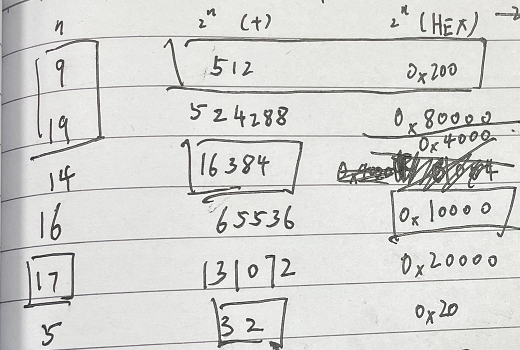 n 2ⁿ (+) 2ⁿ (HEX) →
9 512 0x200
19 524288 0x80000
14 16384 0x4000
16 65536 0x10000
17 131072 0x20000
5 32 0x20